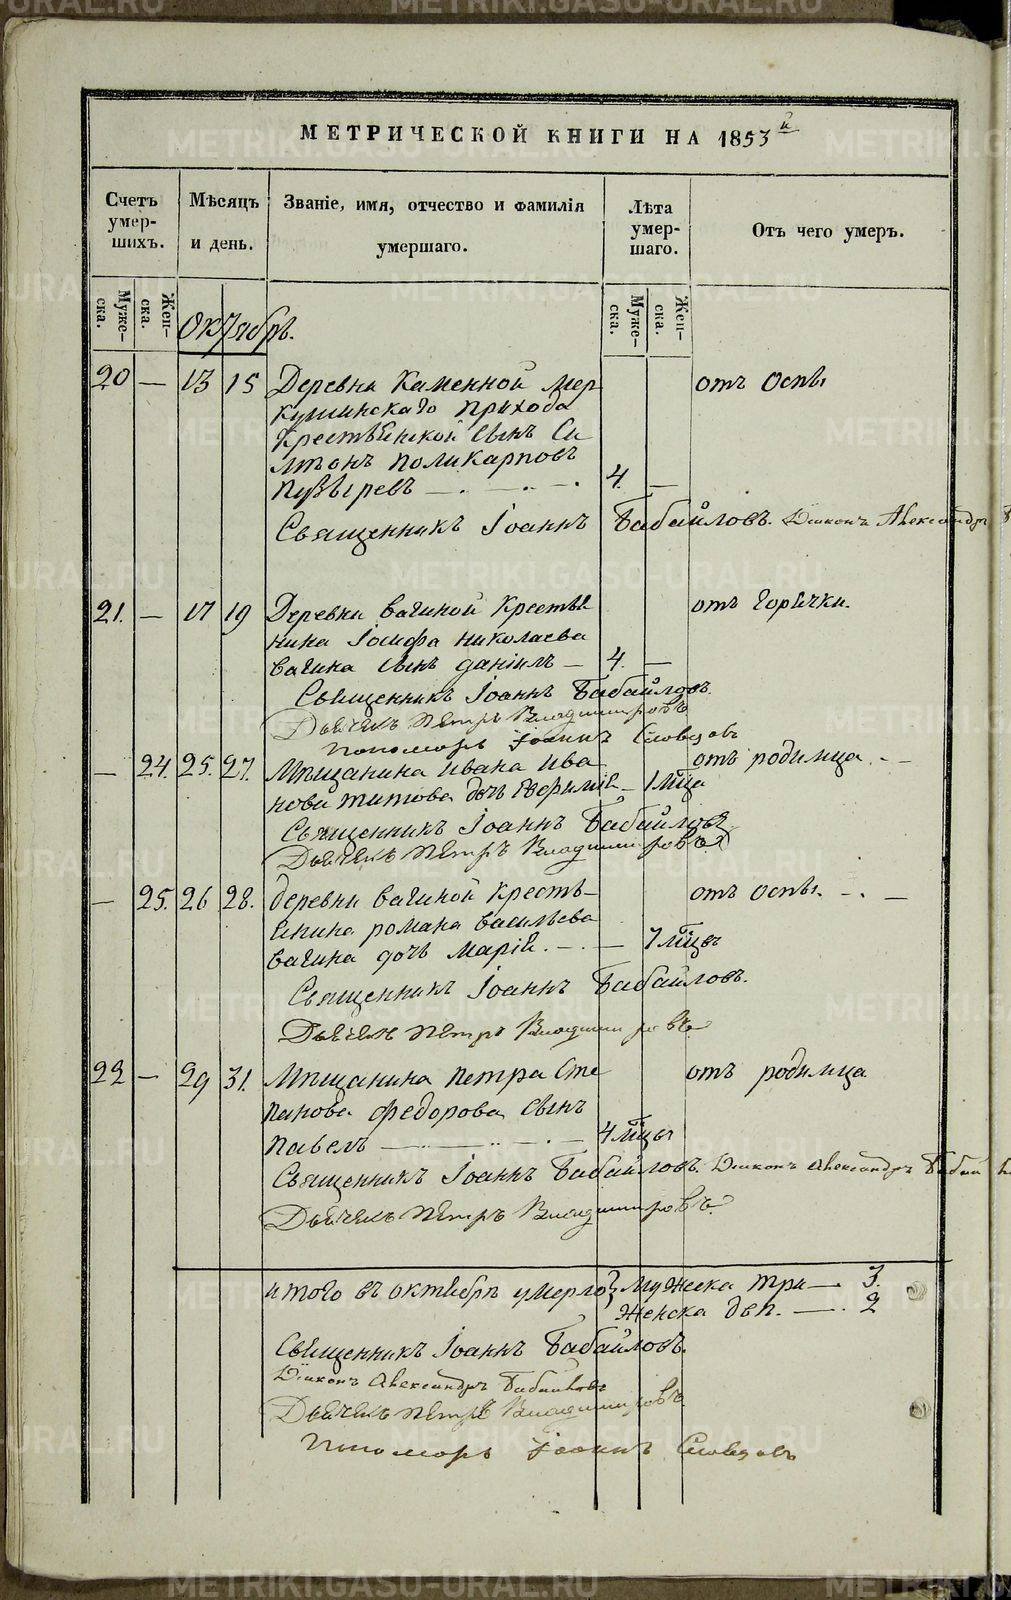 МЕТРИЧЕСКОЙ КНИГИ НА 1853й
Счетъ умер- шихъ.
Мѣсяцъ и день.
Званіе, имя, отчество и фамилія умершаго.
Лѣта умер- шаго.
Отъ чего умеръ.
Муже- ска.
Жен- ска.
Муже- ска.
Жен- ска.
Октябрь.
20 — 13 15 Деревни Каменной Мер от Оспы
кушинскаго прихода
крестьянской сынъ Си
мѣонъ Поликарповъ
Пузыревъ — 4. —
Священникъ Іоаннъ Бабайловъ. Діаконъ Александръ
21. — 17 19 Деревни Вагиной крестья отъ горячки.
нина Іосифа Николаева
Вагина сынъ Даніилъ — 4. —
Священникъ Іоаннъ Бабайловъ
Дьячекъ Петръ Владимировъ
Пономарь Іоаннъ Словцовъ
— 24. 25. 27. Мѣщанина Ивана Ива отъ родимца. —
нова Титова дочь — 1 мѣца
Священникъ Іоаннъ Бабайловъ
Дьячекъ Петръ Владимировъ
— 25. 26 28. Деревни Вагиной кресть- отъ оспы. —
янина Романа Васильева
Вагина дочь Марія. — 7 мѣцъ
Священникъ Іоаннъ Бабайловъ.
Дьячекъ Петръ Владимировъ
22 — 29 31. Мѣщанина Петра Сте отъ родимца
панова Федорова сынъ
Павелъ — 4 мѣцы
Священникъ Іоаннъ Бабайловъ. Діаконъ Александръ Бабай
Дьячекъ Петръ Владимировъ
итого въ октябрѣ умерло} мужеска три — 3.
женска двѣ. — 2
Священникъ Іоаннъ Бабайловъ.
Діаконъ Александръ Бабайловъ
Дьячекъ Петръ Владимировъ
Пономарь Іоаннъ Словцовъ
METRIKI.GASO-URAL.RU